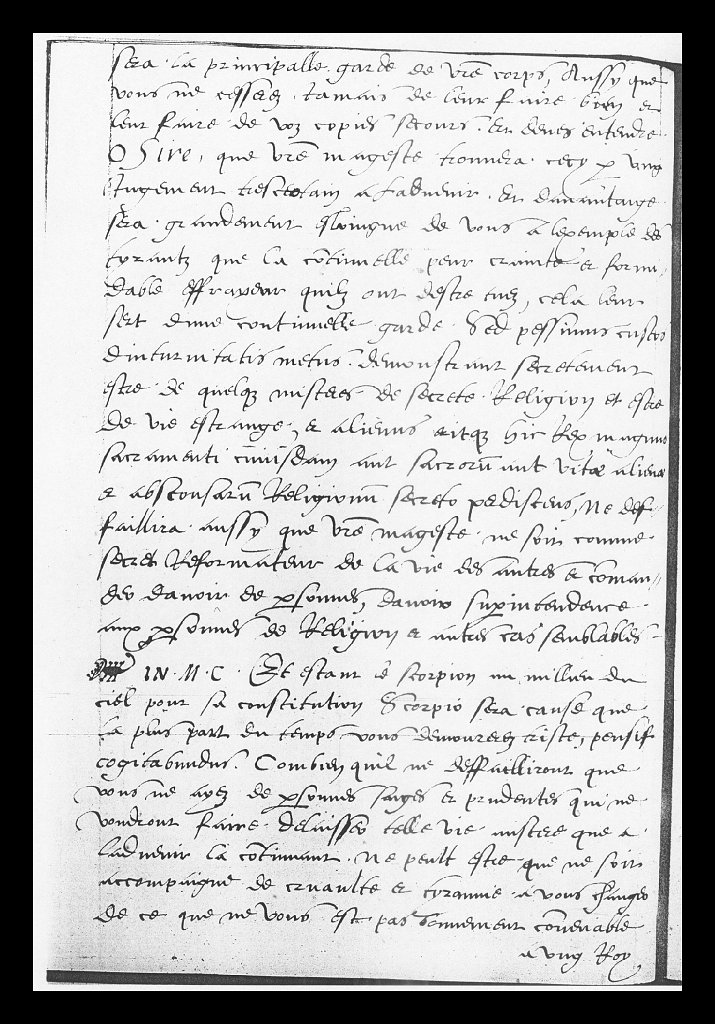 sera la principalle garde de vr̃e corps, Aussy que
vous ne cesserez Iamais de leur faire bien et
leur faire de voz copies secours. Et deues entendre
O Sire, que vr̃e mageste trouuera cecy p̱ vng
Iugement a ladvenir. Et dauantaige
sera grandement esloingne de vous a lexemple des
tyrantz que la cõtinuelle peur crainte et formi-
dable effrayeur quilz ont destre tuez, cela leur
sert dune continuelle garde. Sed pessimus custos
diuturnitatis metus. demonstrant secretement
estre de quelqz misteres de secrete Religion et estre
de vie estrange, et alienus eritqz hic Rex magnus
sacramenti cuiusdam aut sacrorũ aut vitæ alienæ
et absconsarũ Religionũ secreto perdiscens, Ne def-
faillira aussy que vr̃e mageste ne soit comme
secret Reformateur de la vie des aultres et cõman-
der dauoir de p̱sonnes, dauoir superintendence
aux p̱sonnes de Religion et autres cas semblables
IN. M. C. Et estant le scorpion au millieu du
ciel pour sa constitution Scorpio sera cause que
la plus part du temps vous demourerez triste, pensif
cogitabundus. Combien quil ne deffailliront que
vous ne ayez de p̱sonnes saiges et prudentes qui ne
vondront faire delaisser telle vie austere que a
ladvenir la cõtinuant. Ne peult estre que ne soit
accompaigne de cruaulte et tyrannie a vous changer
de ce que ne vous est pas conuenable
a vng Roy